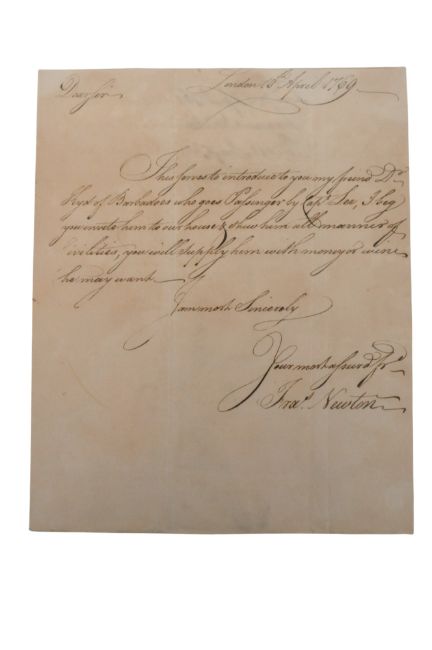 London April 1789
Dear Sir
This serves to introduce to you my friend Dr
Hyd of Barbadoes who goes Passenger by Capt Lee, I beg
you invite him to our house & shew him all manner of
Civilities, you will supply him with money or wine
he may want
I am most Sincerely
Your most assured Frd
Fras. Newton